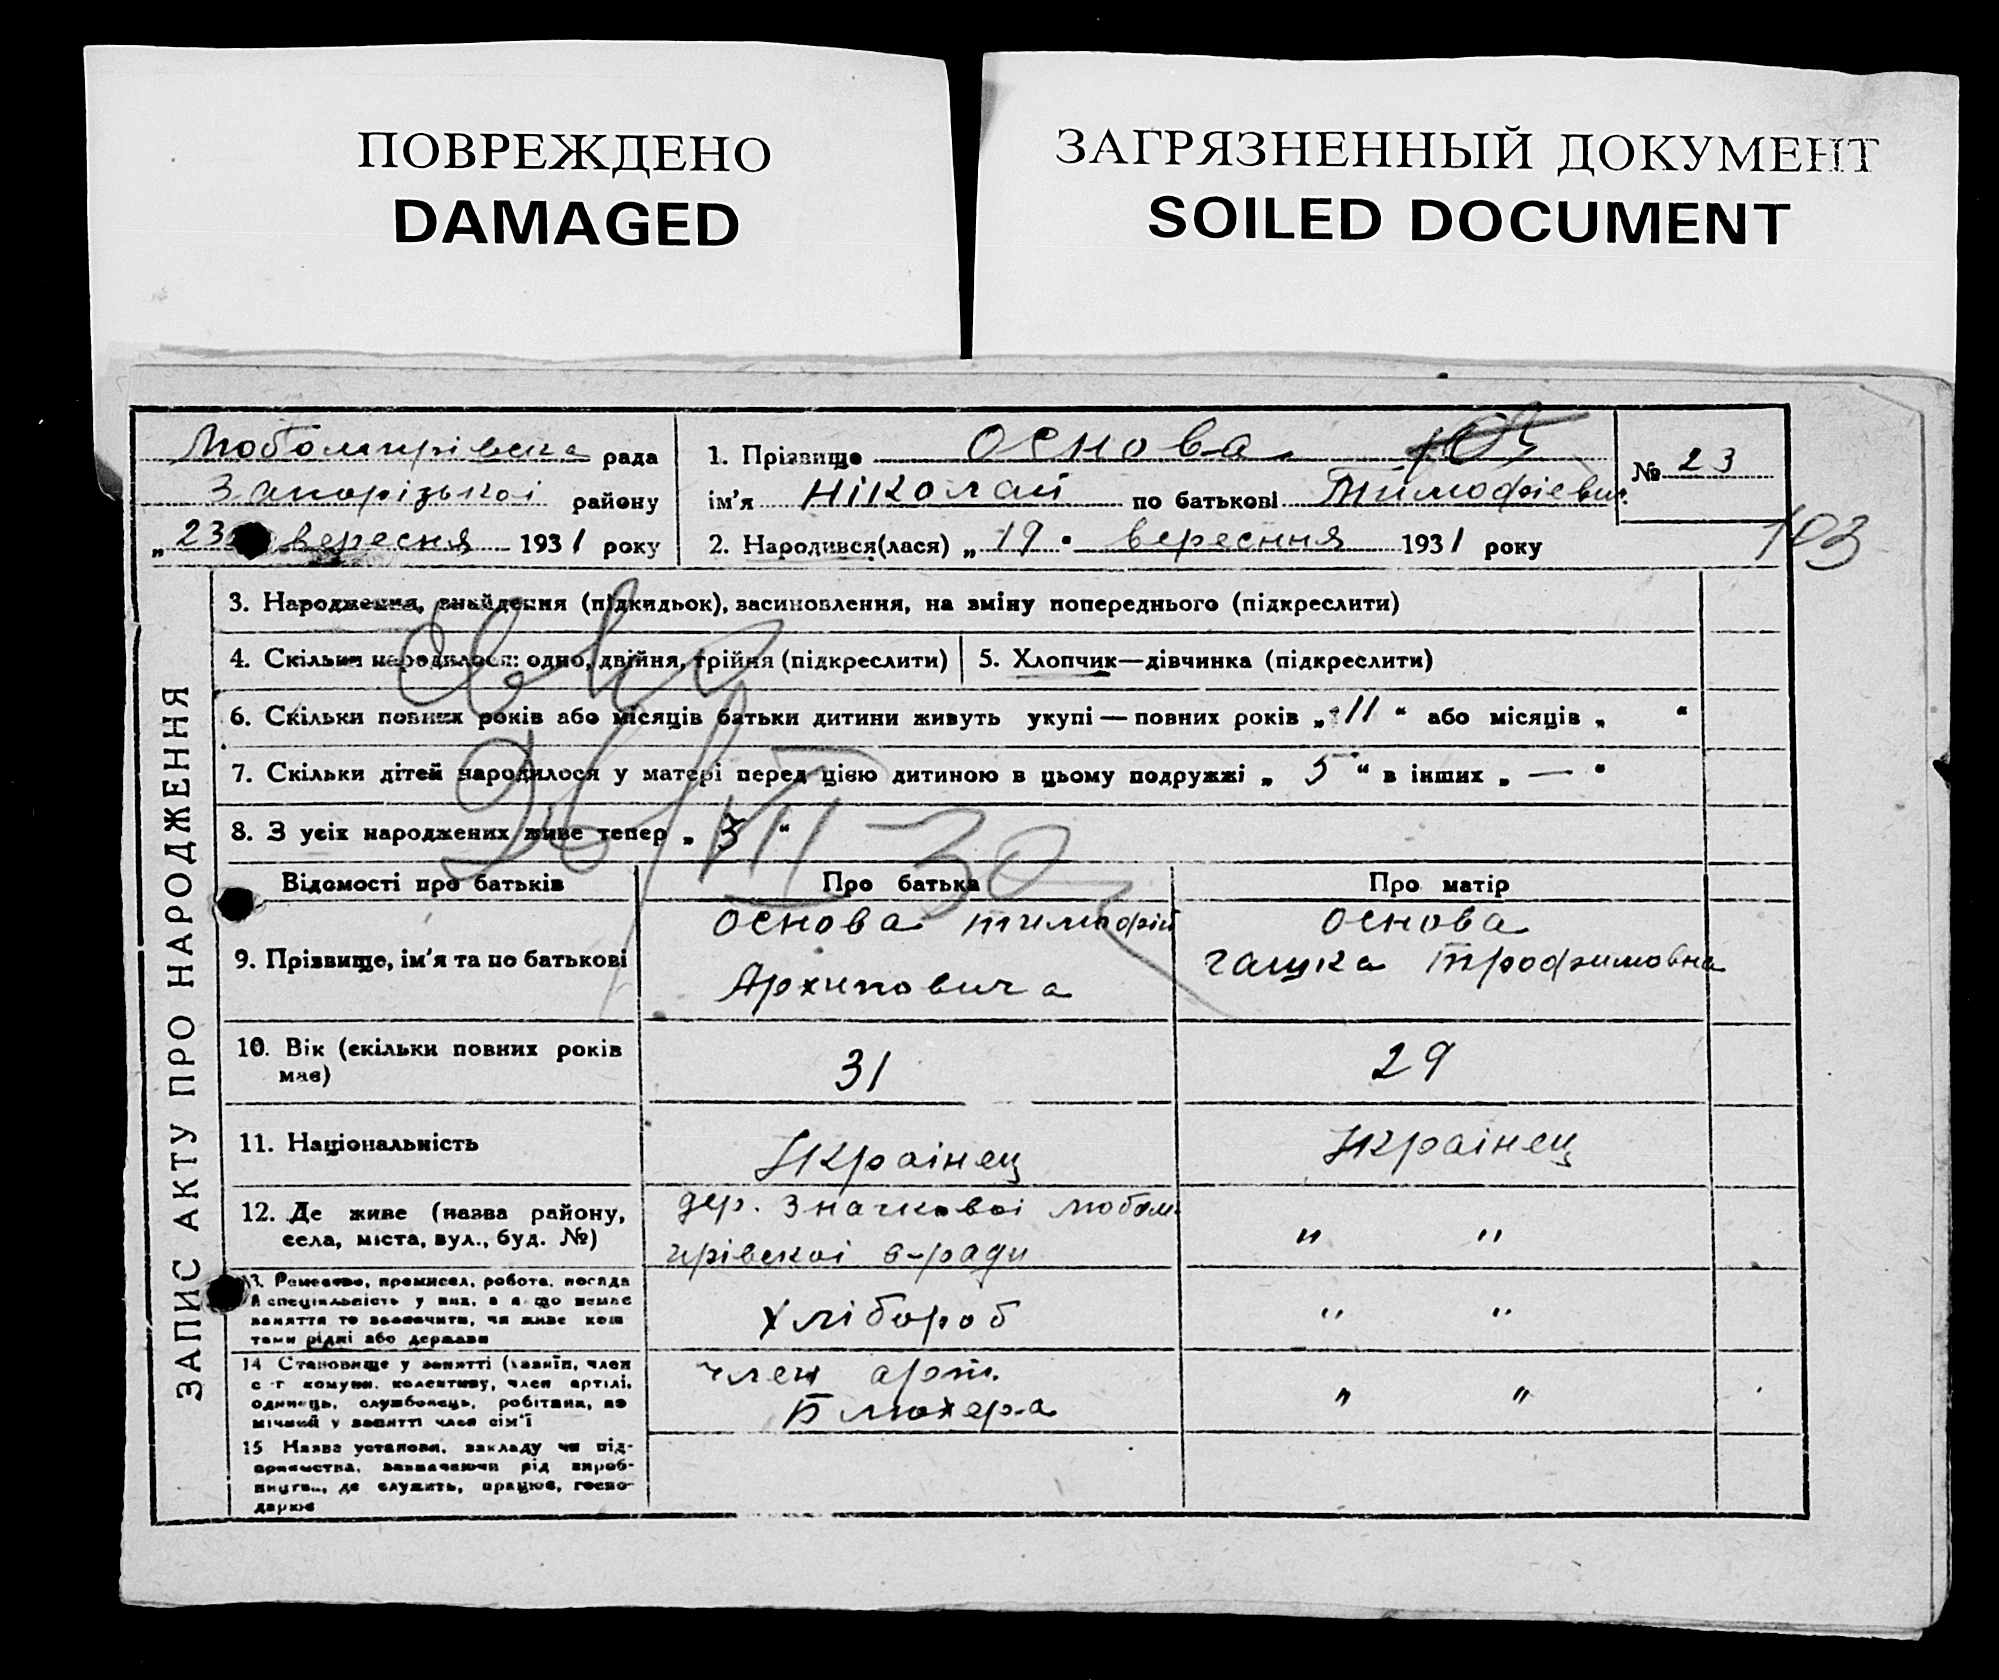 ПОВРЕЖДЕНО
DAMAGED
ЗАГРЯЗНЕННЫЙ ДОКУМЕНТ
SOILED DOCUMENT
Любомирівська рада
Запорізької району
„ 23 вересня 1931 року
1. Прізвище Основа
ім'я Ніколай по батькові Тимофієвич
2. Народився(лася) „ 19 " вересння 1931 року
№ 23
103
ЗАПИС АКТУ ПРО НАРОДЖЕННЯ
3. Народження, знайдення (підкидьок), васиновлення, на зміну попереднього (підкреслити)
4. Скільки народилося: одно, двійня, трійня (підкреслити)
5. Хлопчик—дівчинка (підкреслити)
6. Скільки повних років або місяців батьки дитини живуть укупі — повних років „ 11 " або місяців „ "
7. Скільки дітей народилося у матері перед цією дитиною в цьому подружжі „ 5 " в інших „ — "
8. З усіх народжених живе тепер „ 3 "
Відомості про батьків Про батька Про матір
9. Прізвище, ім'я та по батькові
Основа Тимофій
Архиповича
Основа
Гашка Трофимовна
10. Вік (скільки повних років
має)
31
29
11. Національність
Українец
Українец
12. Де живе (назва району,
села, міста, вул., буд. №)
дер. Значкової Любом
ирівскої с-ради
" "
13. Ремество, промисел, робота, посада
й спеціяльність у них, а якщо немає
заняття то зазначити, чи живе кош
тами рідні або держави
Хлібороб
" "
14 Становище у занятті (хазяїн, член
с-г комуни, колективу, член артілі,
одинець, службовець, робітник, по
мічний у занятті член сім'ї
член арт.
Блюхера
" "
15 Назва установи, закладу чи під-
приємства, зазначаючи рід вироб-
ництва, де служить, працює, госпо-
дарює